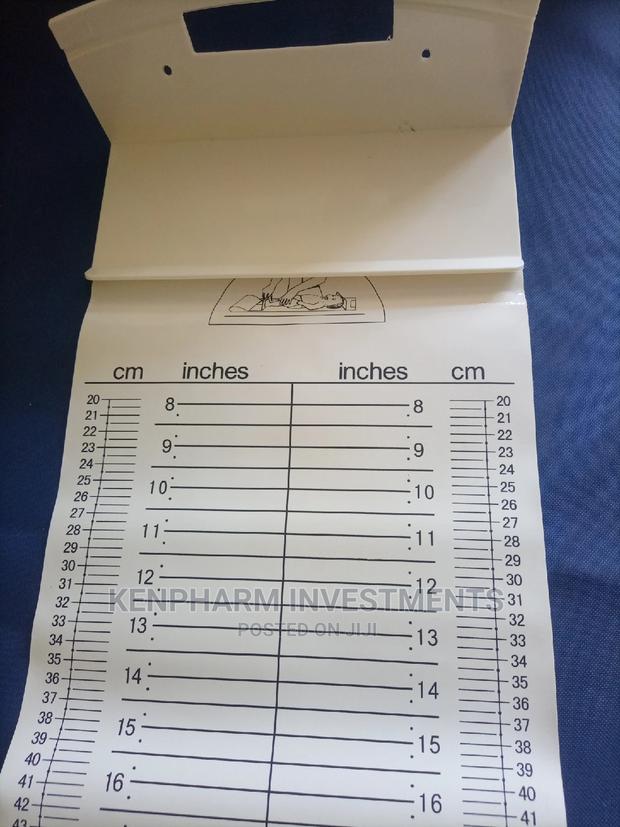 cm inches inches cm
20 8 8 20
21 21
22 22
23 9 9 23
24 24
25 10 10 25
26 26
27 27
28 11 11 28
29 29
30 30
31 12 12 31
32 32
33 13 13 33
34 34
35 35
36 14 14 36
37 37
38 38
39 15 15 39
40 40
41 16 16 41
42
43
KENPHARM INVESTMENTS
POSTED ON JIJI